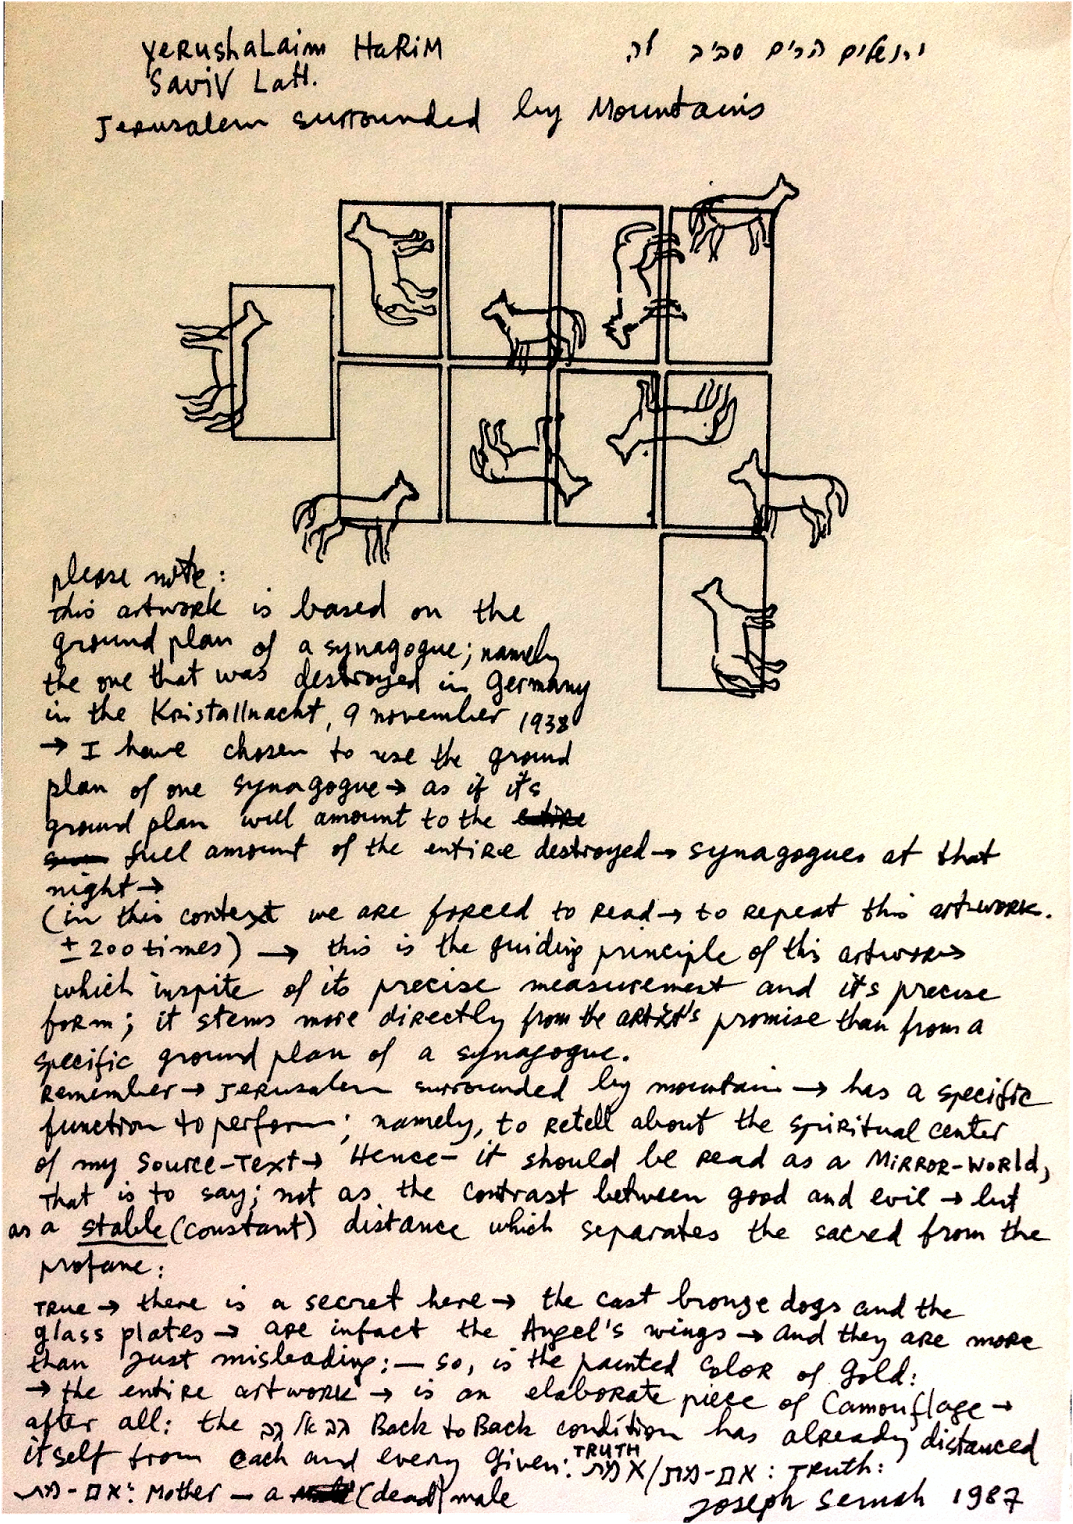 YeRushaLaim HaRiM
SaviV LaH.
ירושלים הרים סביב לה
Jerusalem surrounded by Mountains
please note:
this artwork is based on the
ground plan of a synagogue; namely
the one that was destroyed in Germany
in the Kristallnacht, 9 november 1938
→ I have chosen to use the ground
plan of one synagogue → as if it's
ground plan will amount to the
full amount of the entire destroyed → synagogues at that
night →
(in this context we are forced to read → to repeat this artwork.
± 200 times) → this is the guiding principle of this artwork
which inspite of its precise measurement and it's precise
form; it stems more directly from the artist's promise than from a
specific ground plan of a synagogue.
Remember → Jerusalem surrounded by mountain → has a specific
function to perform; namely, to retell about the spiritual center
of my Source-Text → Hence - it should be read as a MIRROR-World,
that is to say; not as the contrast between good and evil → but
as a stable (constant) distance which separates the sacred from the
profane:
TRue → there is a secret here → the cast bronze dogs and the
glass plates → are infact the Angel's wings → and they are more
than just misleading: — so, is the painted color of Gold:
→ the entire artwork → is an elaborate piece of Camouflage →
after all: the גב אל גב Back to Back condition has already distanced
itself from each and every Given: TRUTH אמת/אם-מת: Truth:
אם-מת: Mother — a (dead) male
Joseph Semah 1987